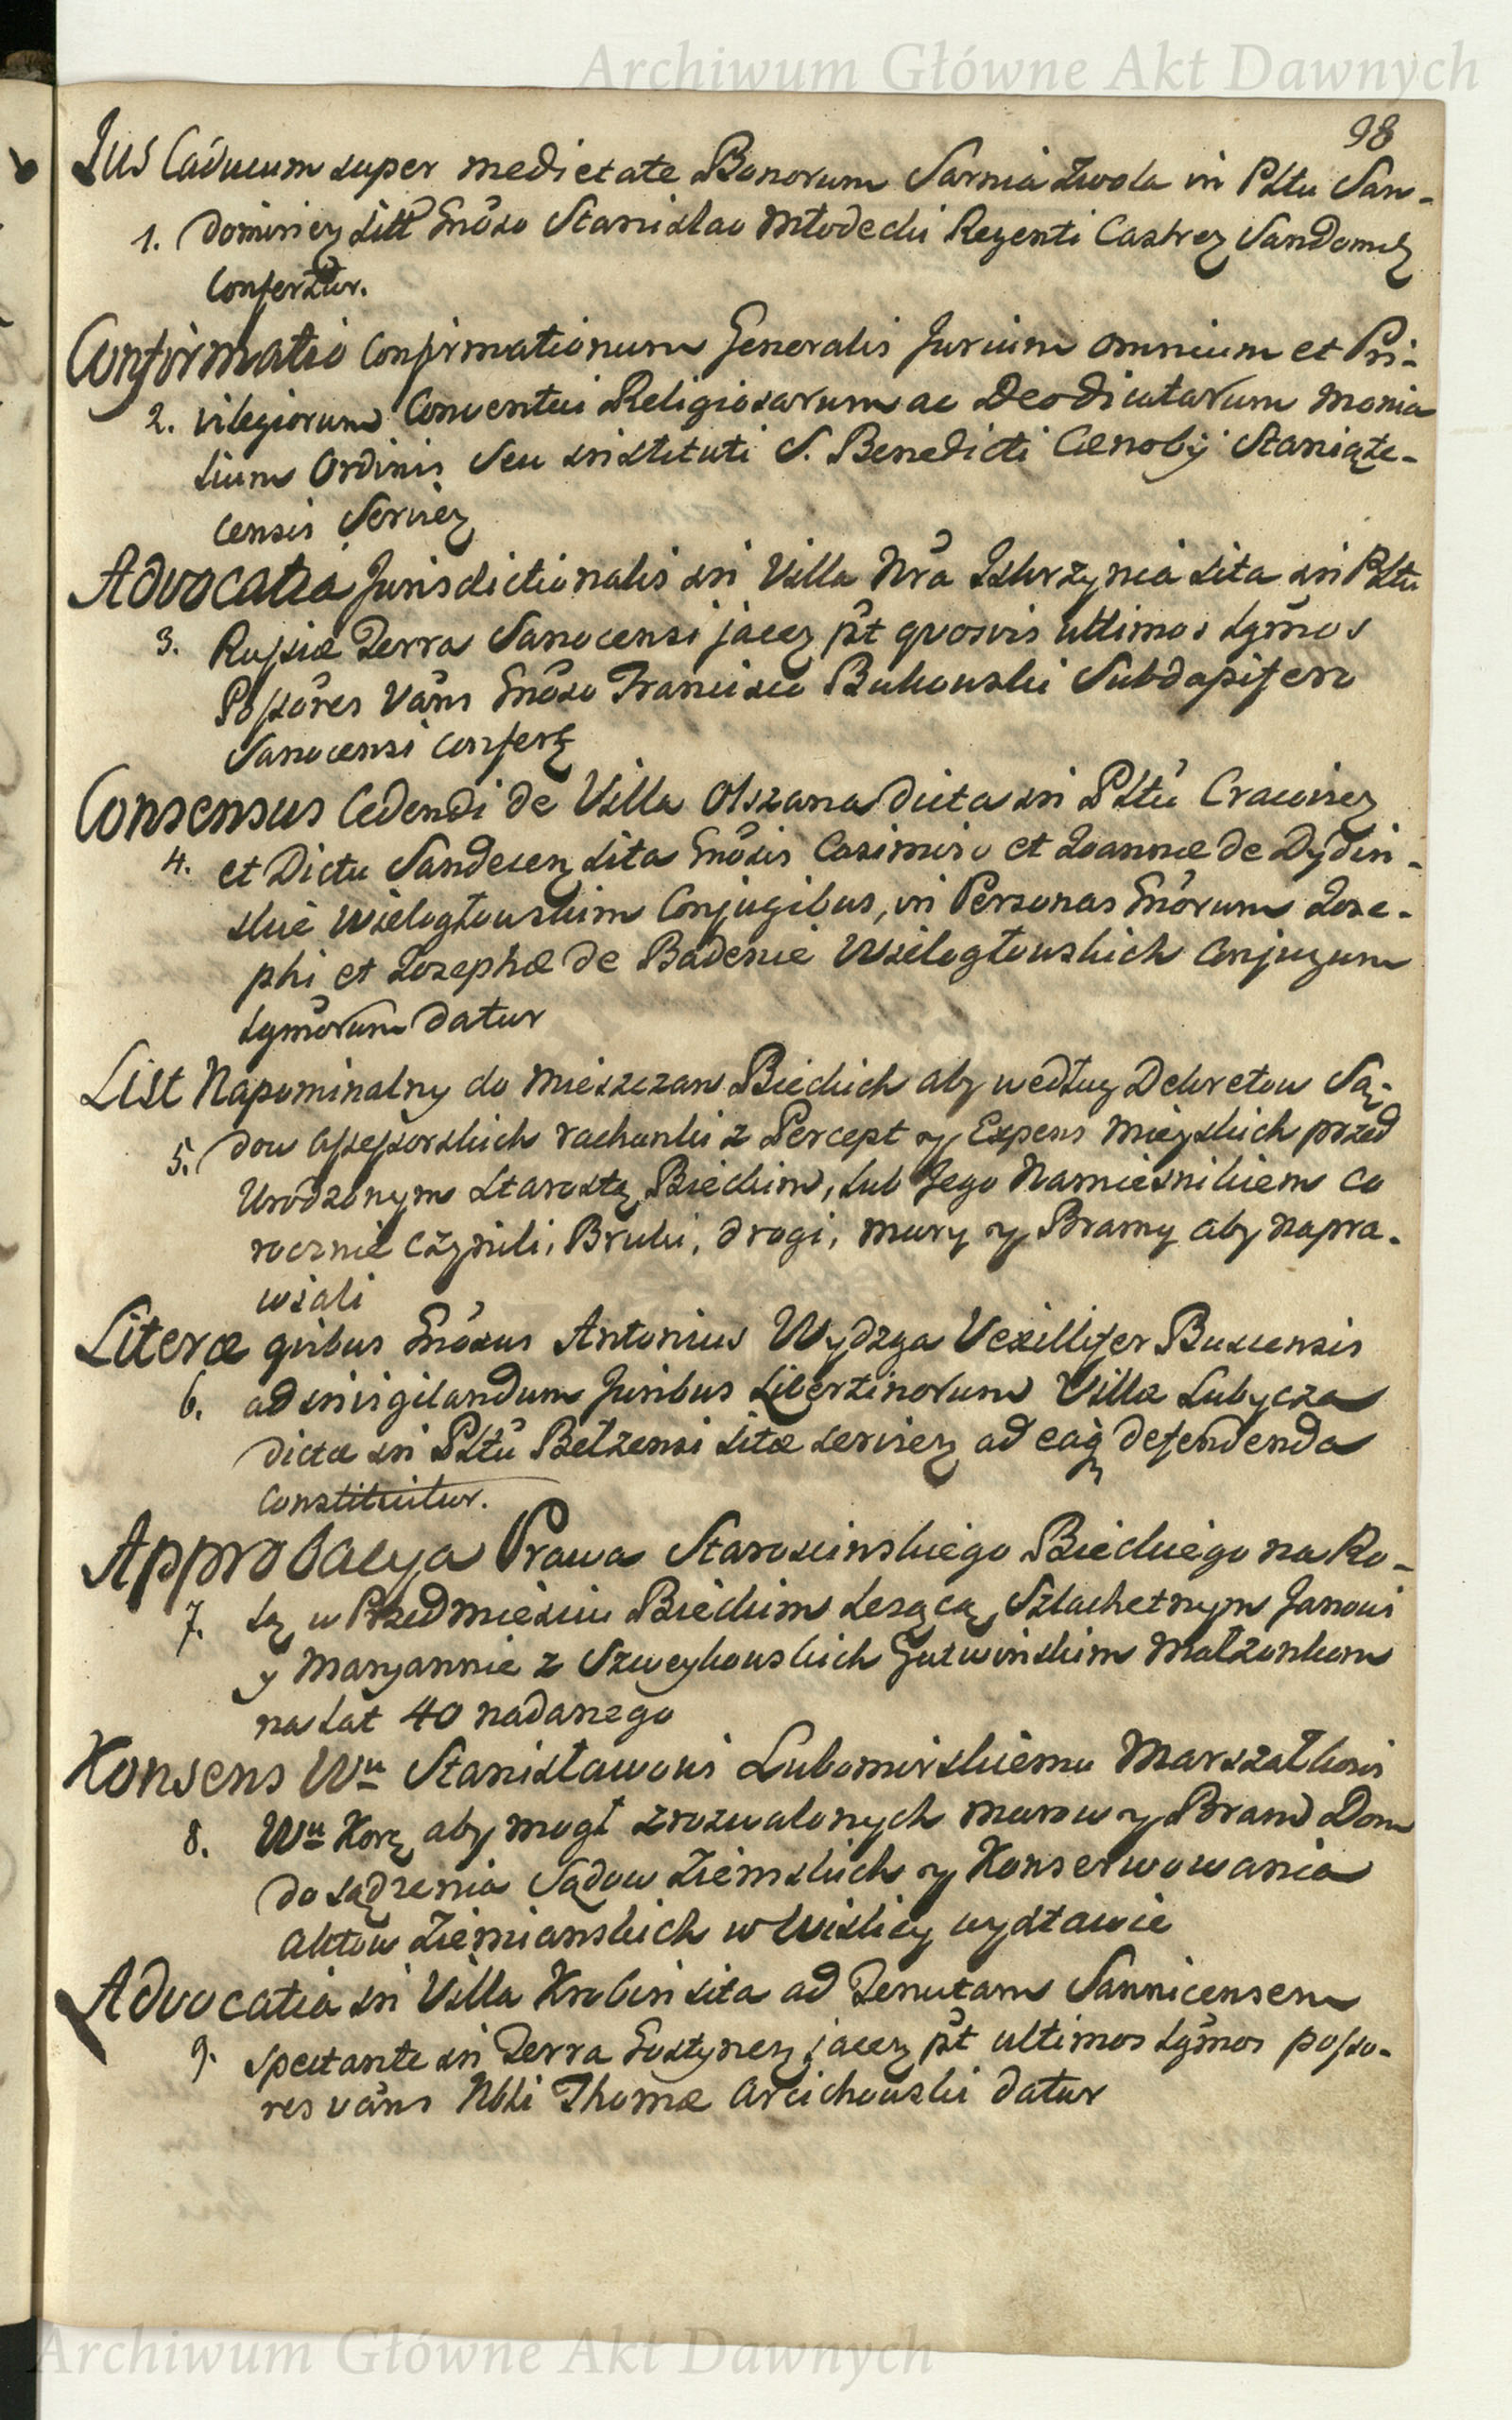 Archiwum Główne Akt Dawnych
98
Jus Caducum super medietate Bonorum Sarnia Zwola in Pltu San-
1. domiriez sitt Gnoso Stanislao Młodecki Regenti Castrez Sandomez
Confertur.
Confirmatio Confirmationum Generalis Jurium omnium et Pri-
2. vilegiorum Conventui Religiosarum ac Deo dicatarum Monia
lium Ordinis Seu instituti S. Benedicti Cœnobij Staniąte-
censis Serviez
Advocatia Jurisdictionalis in Villa Nra Iskrzynia sita in Pltu
3. Russiæ Terra Sanocensi jacez pt quosvis ultimos lgmos
Possores vans Gnoso Francisco Bukowski Subdapifero
Sanocensi Confertz
Consensus Cedendi de Villa Olszana dicta in Pltu Cracoviez
4. et Dictu Sandecen sita Gnosis Casimiro et Joannæ de Dydin-
skie Wielogłowskim Conjugibus, in Personas Gnorum Jose-
phi et Josephæ de Badenie Wielogłowskich Conjugum
lgmorum datur
List Napominalny do Mieszczan Bieckich aby według Dekretow Są-
5. dow Assessorskich rachunki z Percept y Expens Mieyskich przed
Urodzonym Starostą Bieckim, lub Jego Namiesnikiem co
rocznie czynili, Bruki, drogi, mury y Bramy aby napra-
wiali
Literæ quibus Gnosus Antonius Wydzga Vexillifer Buscensis
6. ad invigilandum Juribus Libertinorum Villæ Lubycza
dictæ in Pltu Bełzensi sitæ serviez ad eaq defendenda
Constituitur.
Approbacya Prawa Staroscinskiego Bieckiego na Ro-
7. lą w Przedmiesciu Bieckim lezącą, Szlachetnym Janowi
y Maryannie z Szweykowskich Gutwinskim Małzonkom
na Lat 40 nadanego
Konsens Wu Stanisławowi Lubomirskiemu Marszałkowi
8. Wu Kor aby mogł z rozwalonych murow y Bram Dom
do sądzenia Sądow Ziemskich y Konserwowania
Aktow Ziemianskich w Wislicy wystawic
Advocatia in Villa Krobin sita ad Tenutam Sannicensem
9. spectante in Terra Gostynez jacez pt ultimos lgmos posso-
res vans Nbli Thomæ Arcichowski datur
Archiwum Główne Akt Dawnych